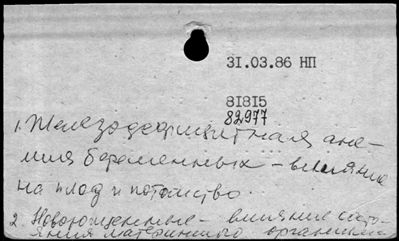 31.03.86 НП
81815
82977
1. Железодефицитная ане-
мия беременных – влияние
на плод и потомство.
2. Новорожденные – влияние состо-
яния материнского организма